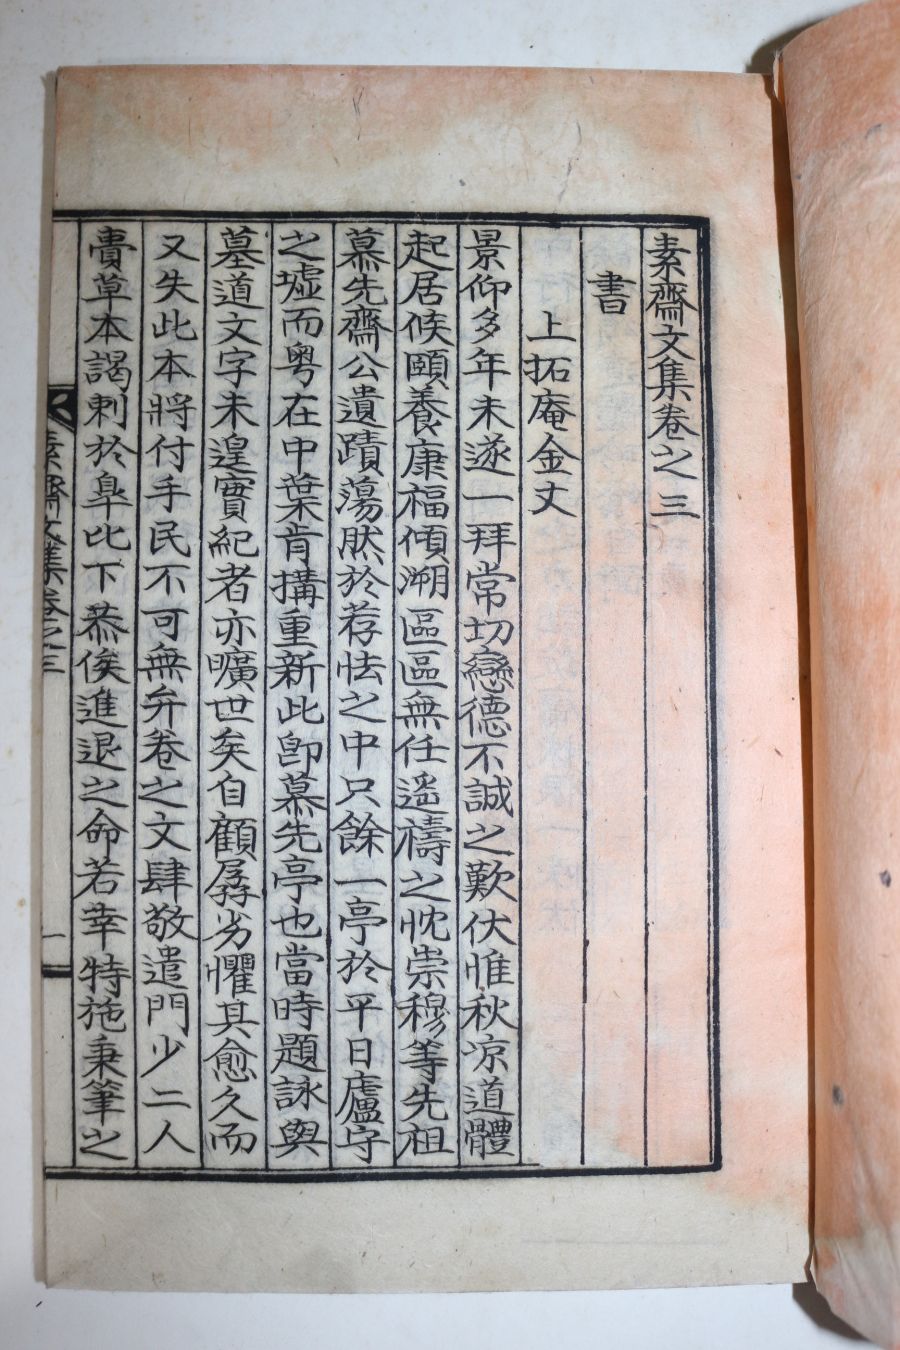 素齋文集卷之三
書
上拓庵金丈
景仰多年未遂一拜常切戀德不誠之歎伏惟秋凉道體
起居候頤養康福傾溯區區無任遙禱之忱崇穆等先祖
慕先齋公遺蹟蕩然於荐怯之中只餘一亭於平日廬字
之墟而粤在中葉肯搆重新此卽慕先亭也當時題詠與
墓道文字未遑實紀者亦曠世矣自顧孱劣懼其愈久而
又失此本將付手民不可無弁卷之文肆敬遣門少二人
賫草本謁刺於臯比下恭俟進退之命若幸特施秉筆之
素齋文集卷之三
一